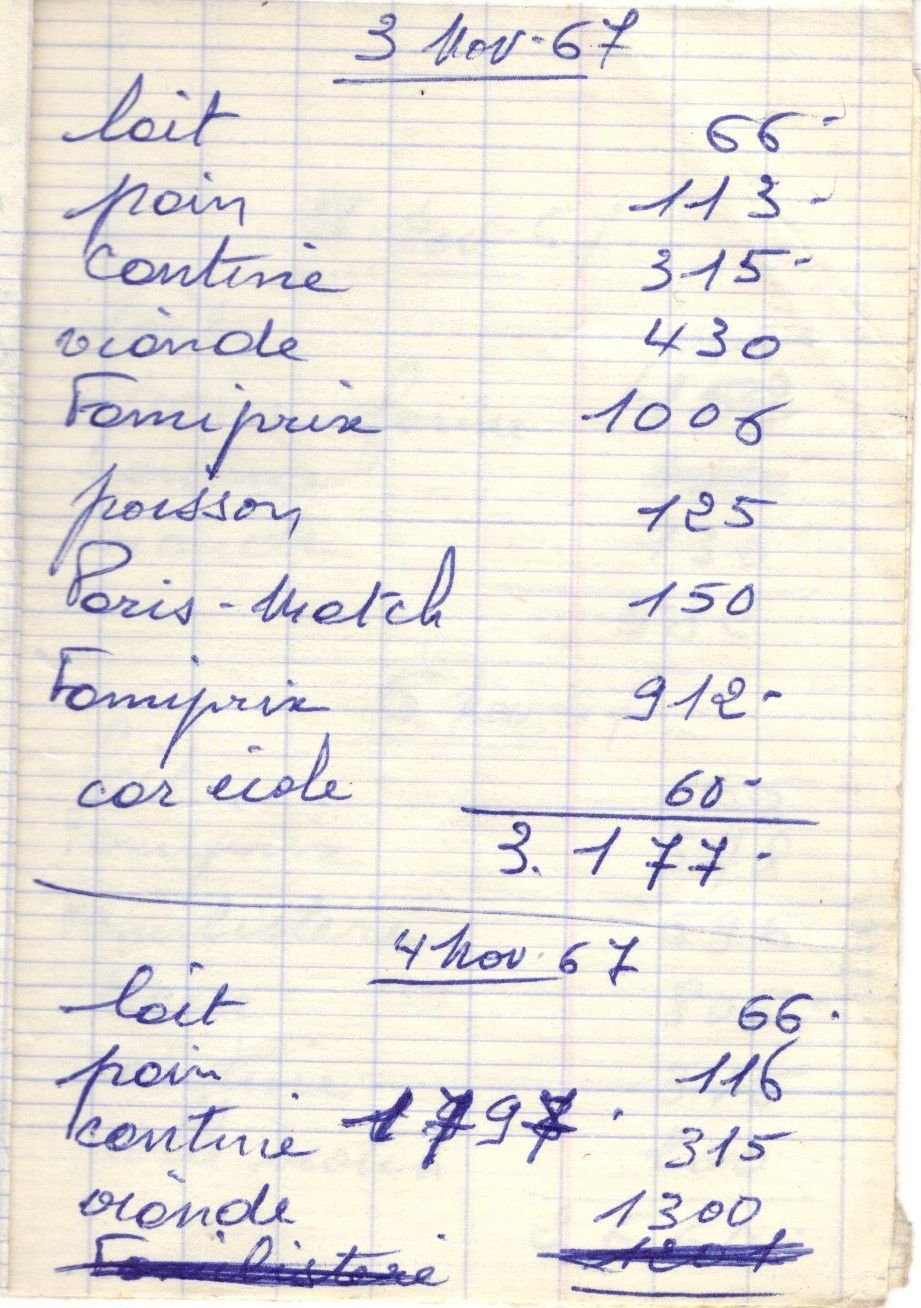 3 Nov-67
lait 66-
pain 113-
cantine 315-
viande 430
Famiprix 1006
poisson 125
Paris-Match 150
Famiprix 912-
car école 60-
3.177-
4 Nov. 67
lait 66.
pain 116
cantine 1797. 315
viande 1300
Familistère 1201